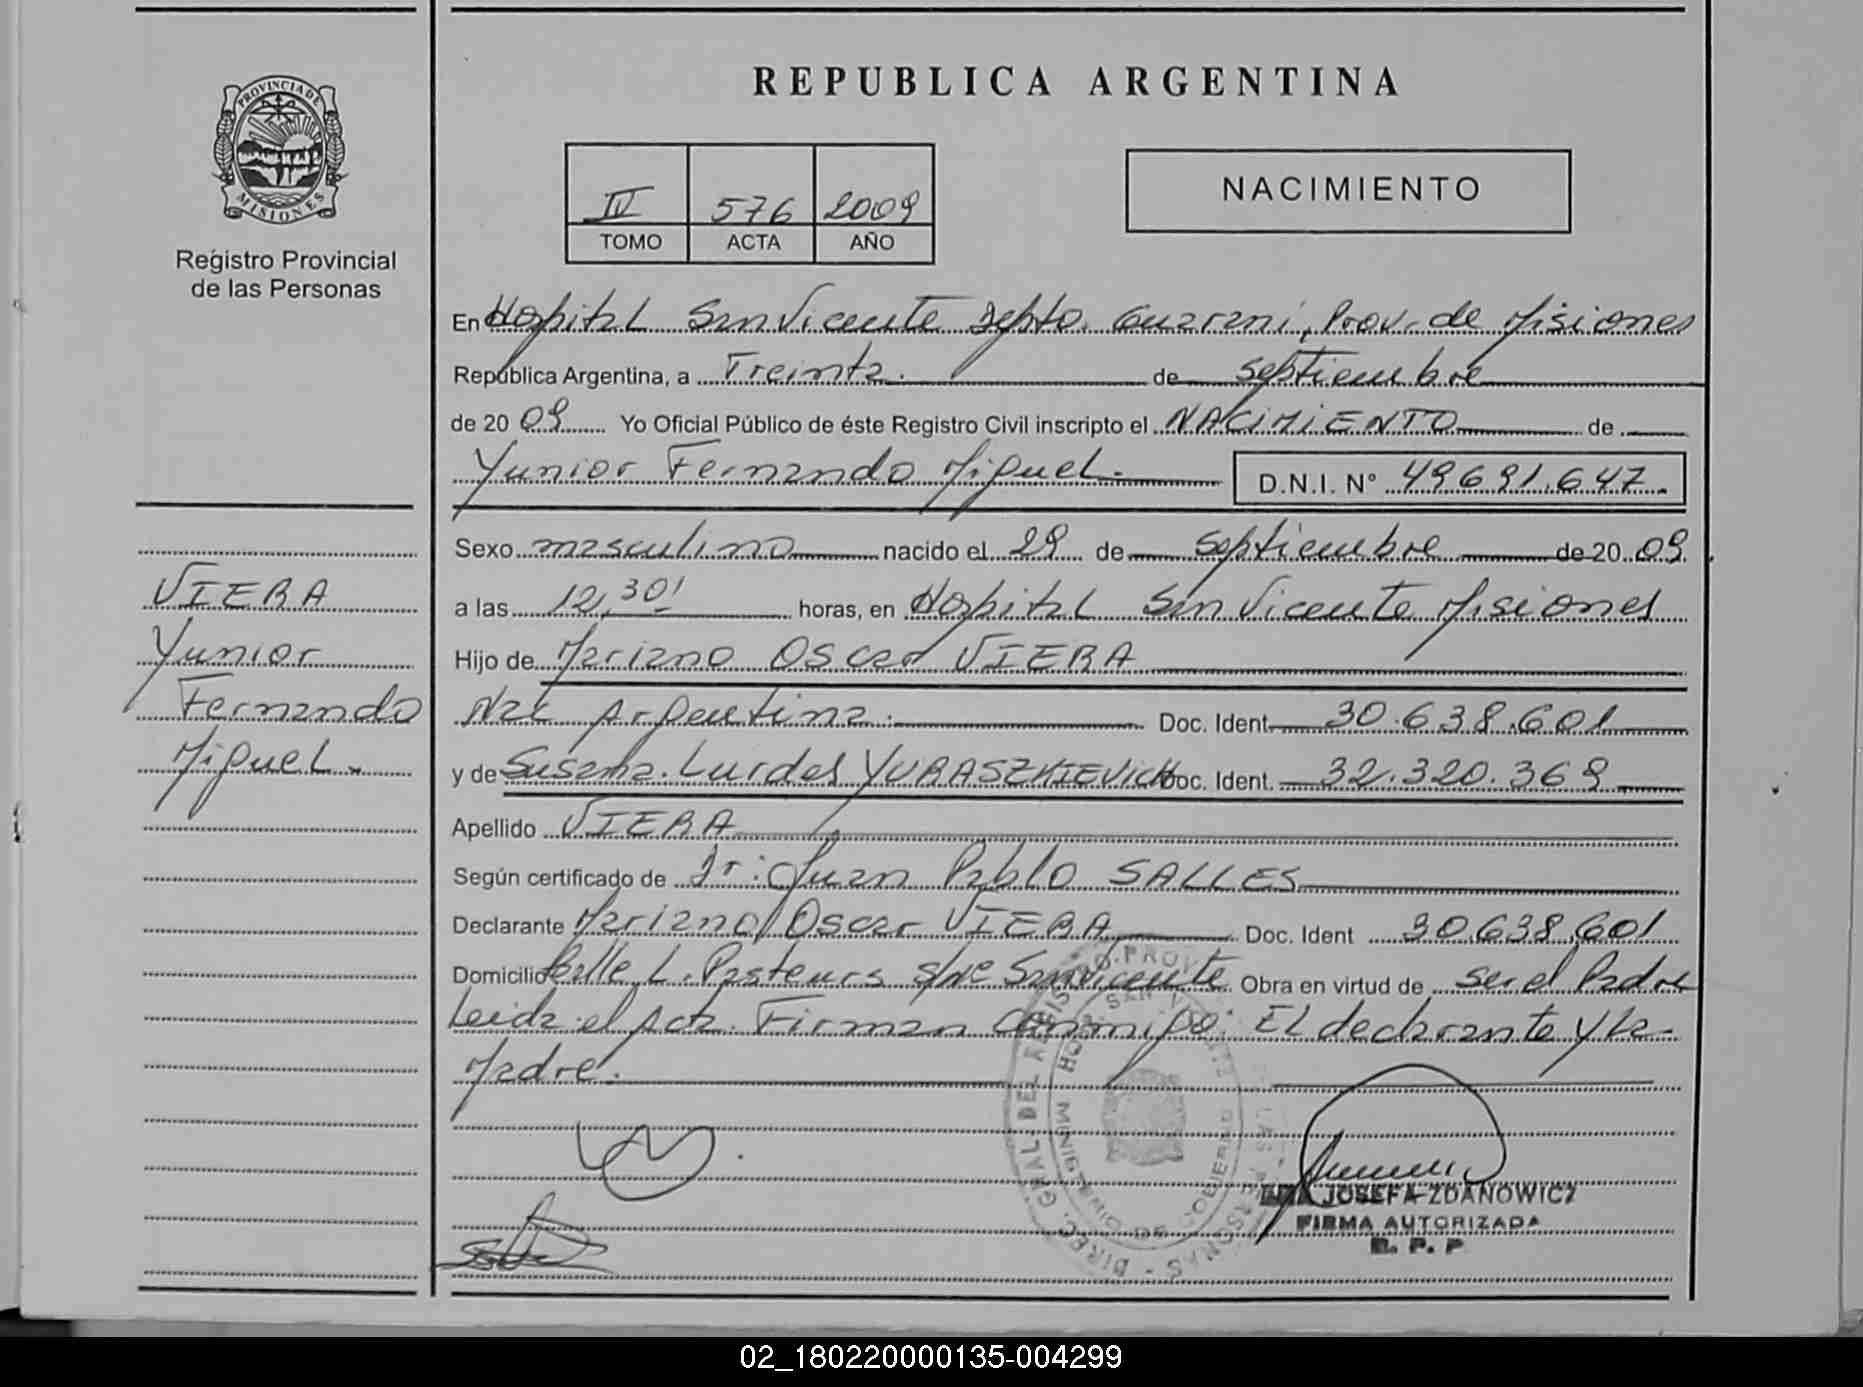 REPUBLICA ARGENTINA
PROVINCIA DE
MISIONES
Registro Provincial
de las Personas
IV 576 2009
TOMO ACTA AÑO
NACIMIENTO
En Hospital San Vicente Depto. Guarani, Prov. de Misiones
República Argentina, a Treinta. de Septiembre
de 2009 Yo Oficial Público de éste Registro Civil inscripto el NACIMIENTO de
Yunior Fernando Miguel. D.N.I. N° 49691.647.
Sexo masculino nacido el 29 de Septiembre de 2009
a las 12,30' horas, en Hospital San Vicente Misiones
Hijo de Mariano Oscar VIERA
Nac Argentina. Doc. Ident. 30.638.601
y de Susana Lurdes YURASZKIEVICH Doc. Ident. 32.320.369
Apellido VIERA
Según certificado de Dr: Juan Pablo SALLES
Declarante Mariano Oscar VIERA Doc. Ident 30.638.601
Domicilio Calle L. Pasteurs s/nº San Vicente Obra en virtud de ser el Padre
Leida el Acta. Firman conmigo: El declarante y la
Madre.
VIERA
Yunior
Fernando
Miguel.
JOSEFA ZDANOWICZ
FIRMA AUTORIZADA
R. P. P
02_180220000135-004299